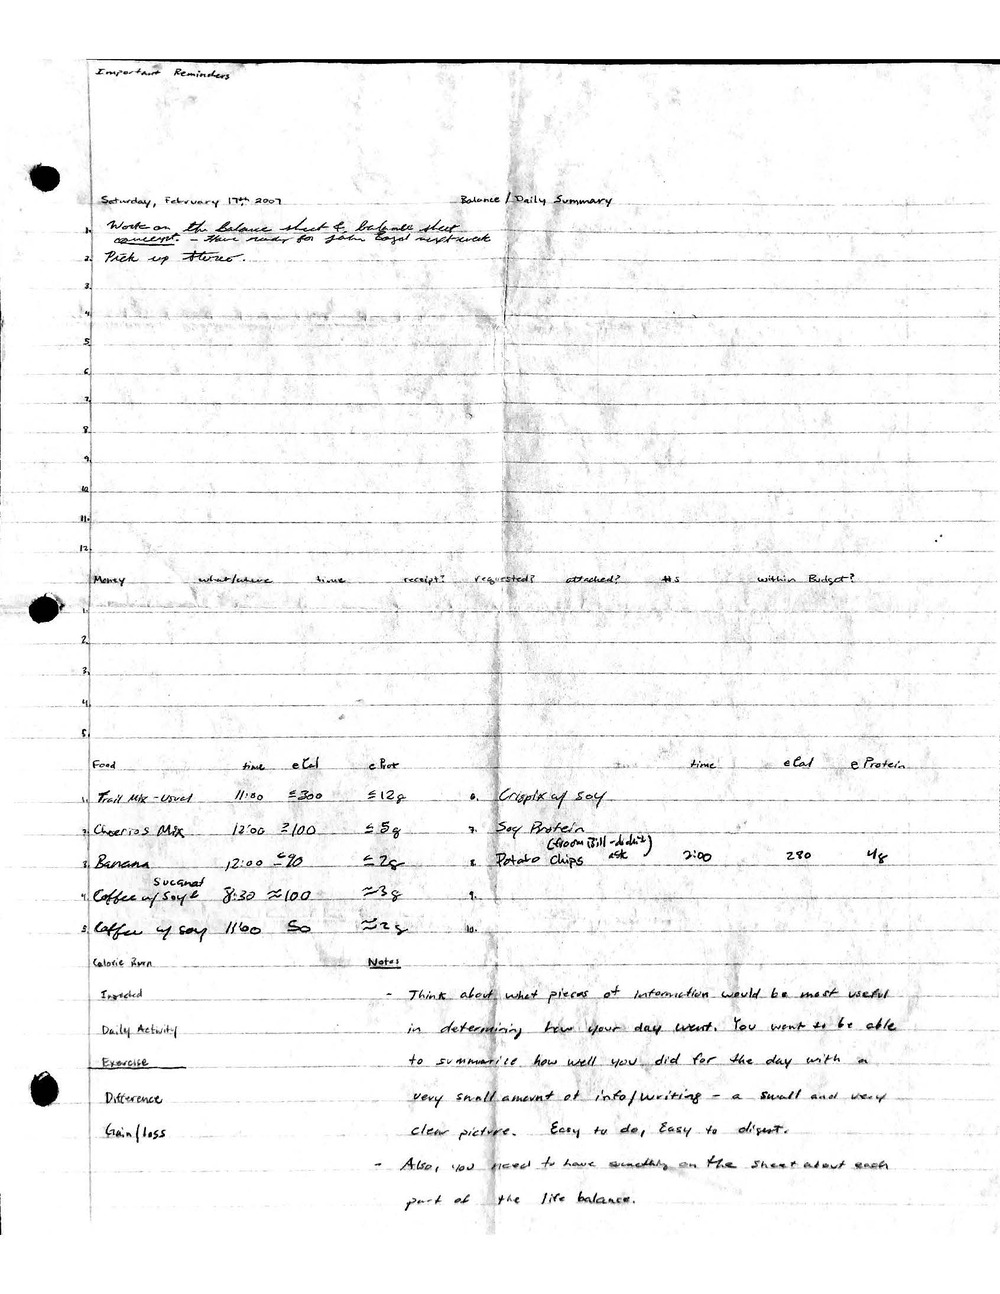 Important Reminders
Saturday, February 17th 2007 Balance / Daily Summary
1. Work on the balance sheet & balance sheet
concept. - Have ready for John next week
2. Pick up stereo.
3.
4.
5.
6.
7.
8.
9.
10.
11.
12.
Money what/where time receipt? requested? attached? #s within Budget?
1.
2.
3.
4.
5.
Food time eCal eProt time eCal eProtein
1. Trail Mix - usual 11:00 ≤300 ≤12g 6. Crispix w/ soy
2. Cheerios Mix 12:00 ≥100 ≤5g 7. Soy Protein
(from Bill - didn't ask)
3. Banana 12:00 ≤90 ≤2g 8. Potato Chips 2:00 280 4g
Sucanat
4. Coffee w/ Soy & 8:30 ≈100 ≈3g 9.
5. Coffee w/ soy 11:00 50 ≈2g 10.
Calorie Burn Notes
Ingested - Think about what pieces of information would be most useful
Daily Activity in determining how your day went. You want to be able
Exercise to summarize how well you did for the day with a
Difference very small amount of info/writing - a small and very
Gain/loss clear picture. Easy to do, Easy to digest.
- Also, you need to have something on the sheet about each
part of the life balance.